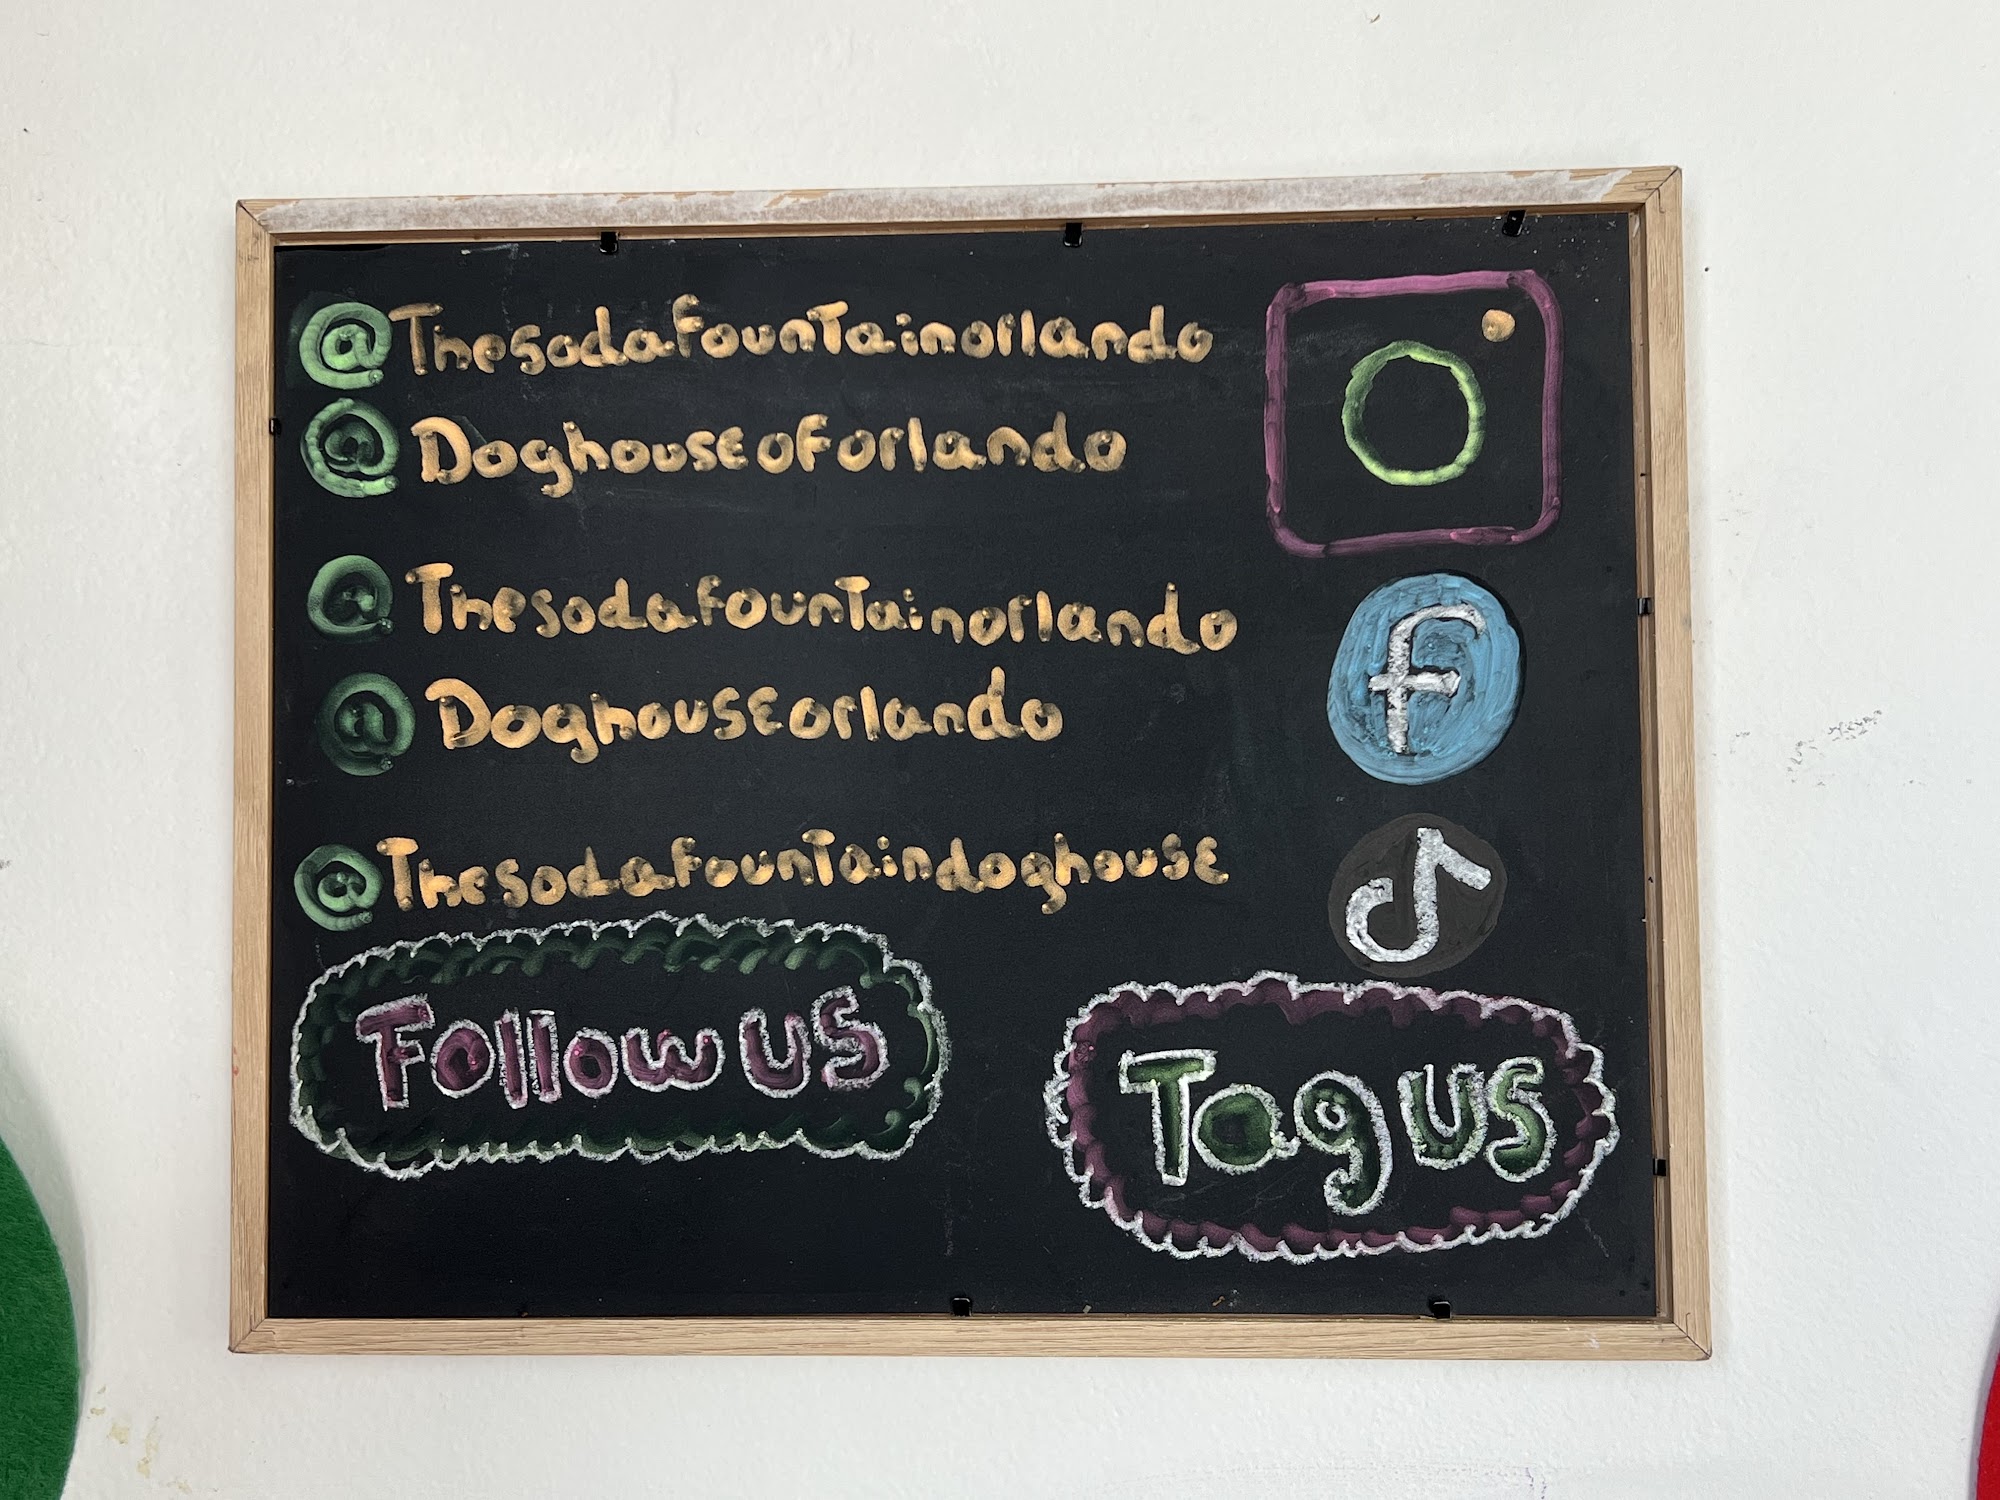 @Thesodafountainorlando
@Doghouseoforlando
@Thesodafountainorlando
@Doghouseorlando
@Thesodafountaindoghouse
Follow us
Tag us